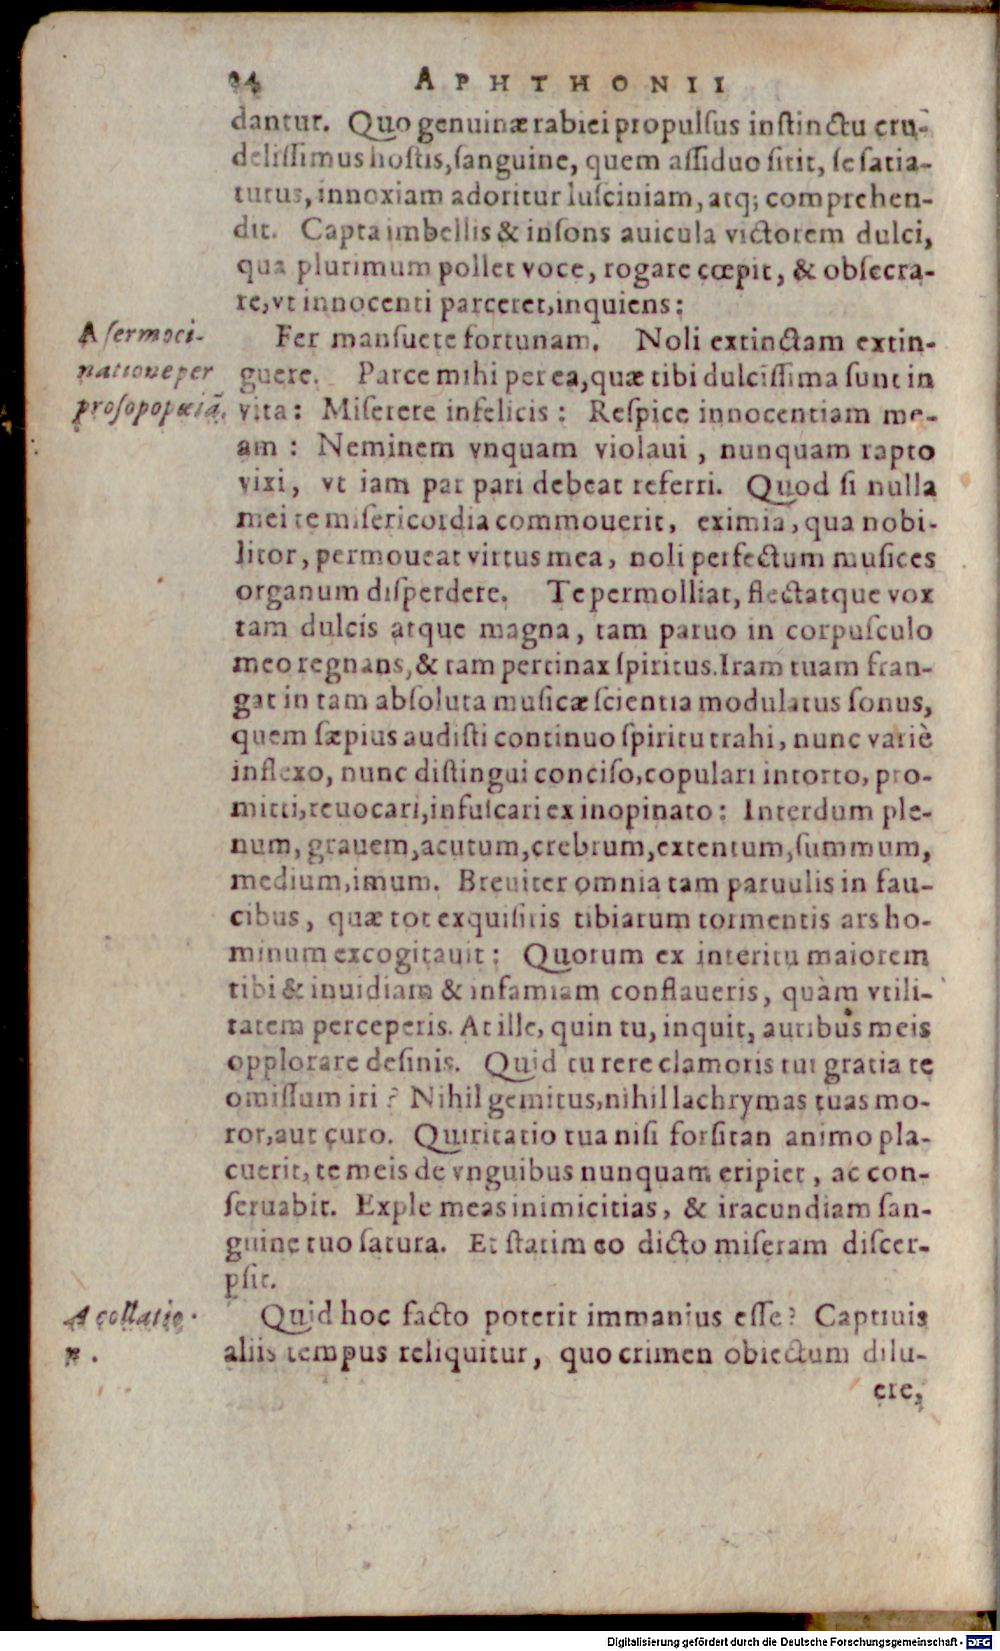 94 APHTHONII
dantur. Quo genuinæ rabiei propulſus inſtinctu cru-
deliſſimus hoſtis, ſanguine, quem aſſiduo ſitit, ſe ſatia-
turus, innoxiam adoritur luſciniam, atq; comprehen-
dit. Capta imbellis & inſons auicula victorem dulci,
qua plurimum pollet voce, rogare cœpit, & obſecra-
re, vt innocenti parceret, inquiens:
A ſermoci-
natione per
proſopopœiã.
Fer manſuete fortunam. Noli extinctam extin-
guere. Parce mihi per ea, quæ tibi dulciſſima ſunt in
vita: Miſerere infelicis: Reſpice innocentiam me-
am: Neminem vnquam violaui, nunquam rapto
vixi, vt iam par pari debeat referri. Quod ſi nulla
mei te miſericordia commouerit, eximia, qua nobi-
litor, permoueat virtus mea, noli perfectum muſices
organum diſperdere. Te permolliat, flectatque vox
tam dulcis atque magna, tam paruo in corpuſculo
meo regnans, & tam pertinax ſpiritus. Iram tuam fran-
gat in tam abſoluta muſicæ ſcientia modulatus ſonus,
quem ſæpius audiſti continuo ſpiritu trahi, nunc variè
inflexo, nunc diſtingui conciſo, copulari intorto, pro-
mitti, reuocari, infuſcari ex inopinato: Interdum ple-
num, grauem, acutum, crebrum, extentum, ſummum,
medium, imum. Breuiter omnia tam paruulis in fau-
cibus, quæ tot exquiſitis tibiarum tormentis ars ho-
minum excogitauit: Quorum ex interitu maiorem
tibi & inuidiam & infamiam conflaueris, quàm vtili-
tatem perceperis. At ille, quin tu, inquit, auribus meis
opplorare deſinis. Quid tu rere clamoris tui gratia te
omiſſum iri? Nihil gemitus, nihil lachrymas tuas mo-
ror, aut curo. Quiritatio tua niſi forſitan animo pla-
cuerit, te meis de vnguibus nunquam eripiet, ac con-
ſeruabit. Exple meas inimicitias, & iracundiam ſan-
guine tuo ſatura. Et ſtatim eo dicto miſeram diſcer-
pſit.
A collatio-
ne.
Quid hoc facto poterit immanius eſſe? Captiuis
aliis tempus reliquitur, quo crimen obiectum dilu-
ere,
Digitalisierung gefördert durch die Deutsche Forschungsgemeinschaft - DFG